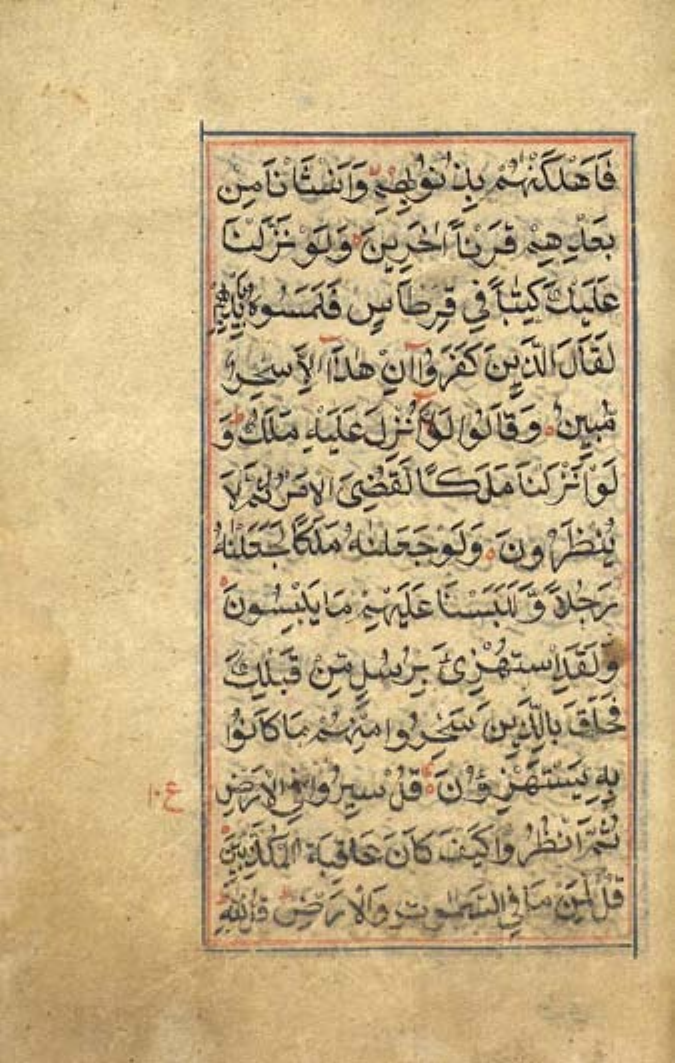 فَاَهْلَكْنٰهُمْ بِذُنُوْبِهِمْ وَاَنْشَاْنَا مِنْ
بَعْدِهِمْ قَرْنًا اٰخَرِيْنَ وَلَوْ نَزَّلْنَا
عَلَيْكَ كِتٰبًا فِيْ قِرْطَاسٍ فَلَمَسُوْهُ بِاَيْدِيْهِمْ
لَقَالَ الَّذِيْنَ كَفَرُوْا اِنْ هٰذَا اِلَّا سِحْرٌ
مُّبِيْنٌ وَقَالُوْا لَوْلَا اُنْزِلَ عَلَيْهِ مَلَكٌ وَ
لَوْ اَنْزَلْنَا مَلَكًا لَقُضِيَ الْاَمْرُ ثُمَّ لَا
يُنْظَرُوْنَ وَلَوْ جَعَلْنٰهُ مَلَكًا لَجَعَلْنٰهُ
رَجُلًا وَّ لَلَبَسْنَا عَلَيْهِمْ مَا يَلْبِسُوْنَ
وَلَقَدِ اسْتُهْزِئَ بِرُسُلٍ مِّنْ قَبْلِكَ
فَحَاقَ بِالَّذِيْنَ سَخِرُوْا مِنْهُمْ مَا كَانُوْا
بِهٖ يَسْتَهْزِءُوْنَ قُلْ سِيْرُوْا فِي الْاَرْضِ
ثُمَّ انْظُرُوْا كَيْفَ كَانَ عَاقِبَةُ الْمُكَذِّبِيْنَ
قُلْ لِّمَنْ مَا فِي السَّمٰوٰتِ وَالْاَرْضِ قُلْ لِلّٰهِ